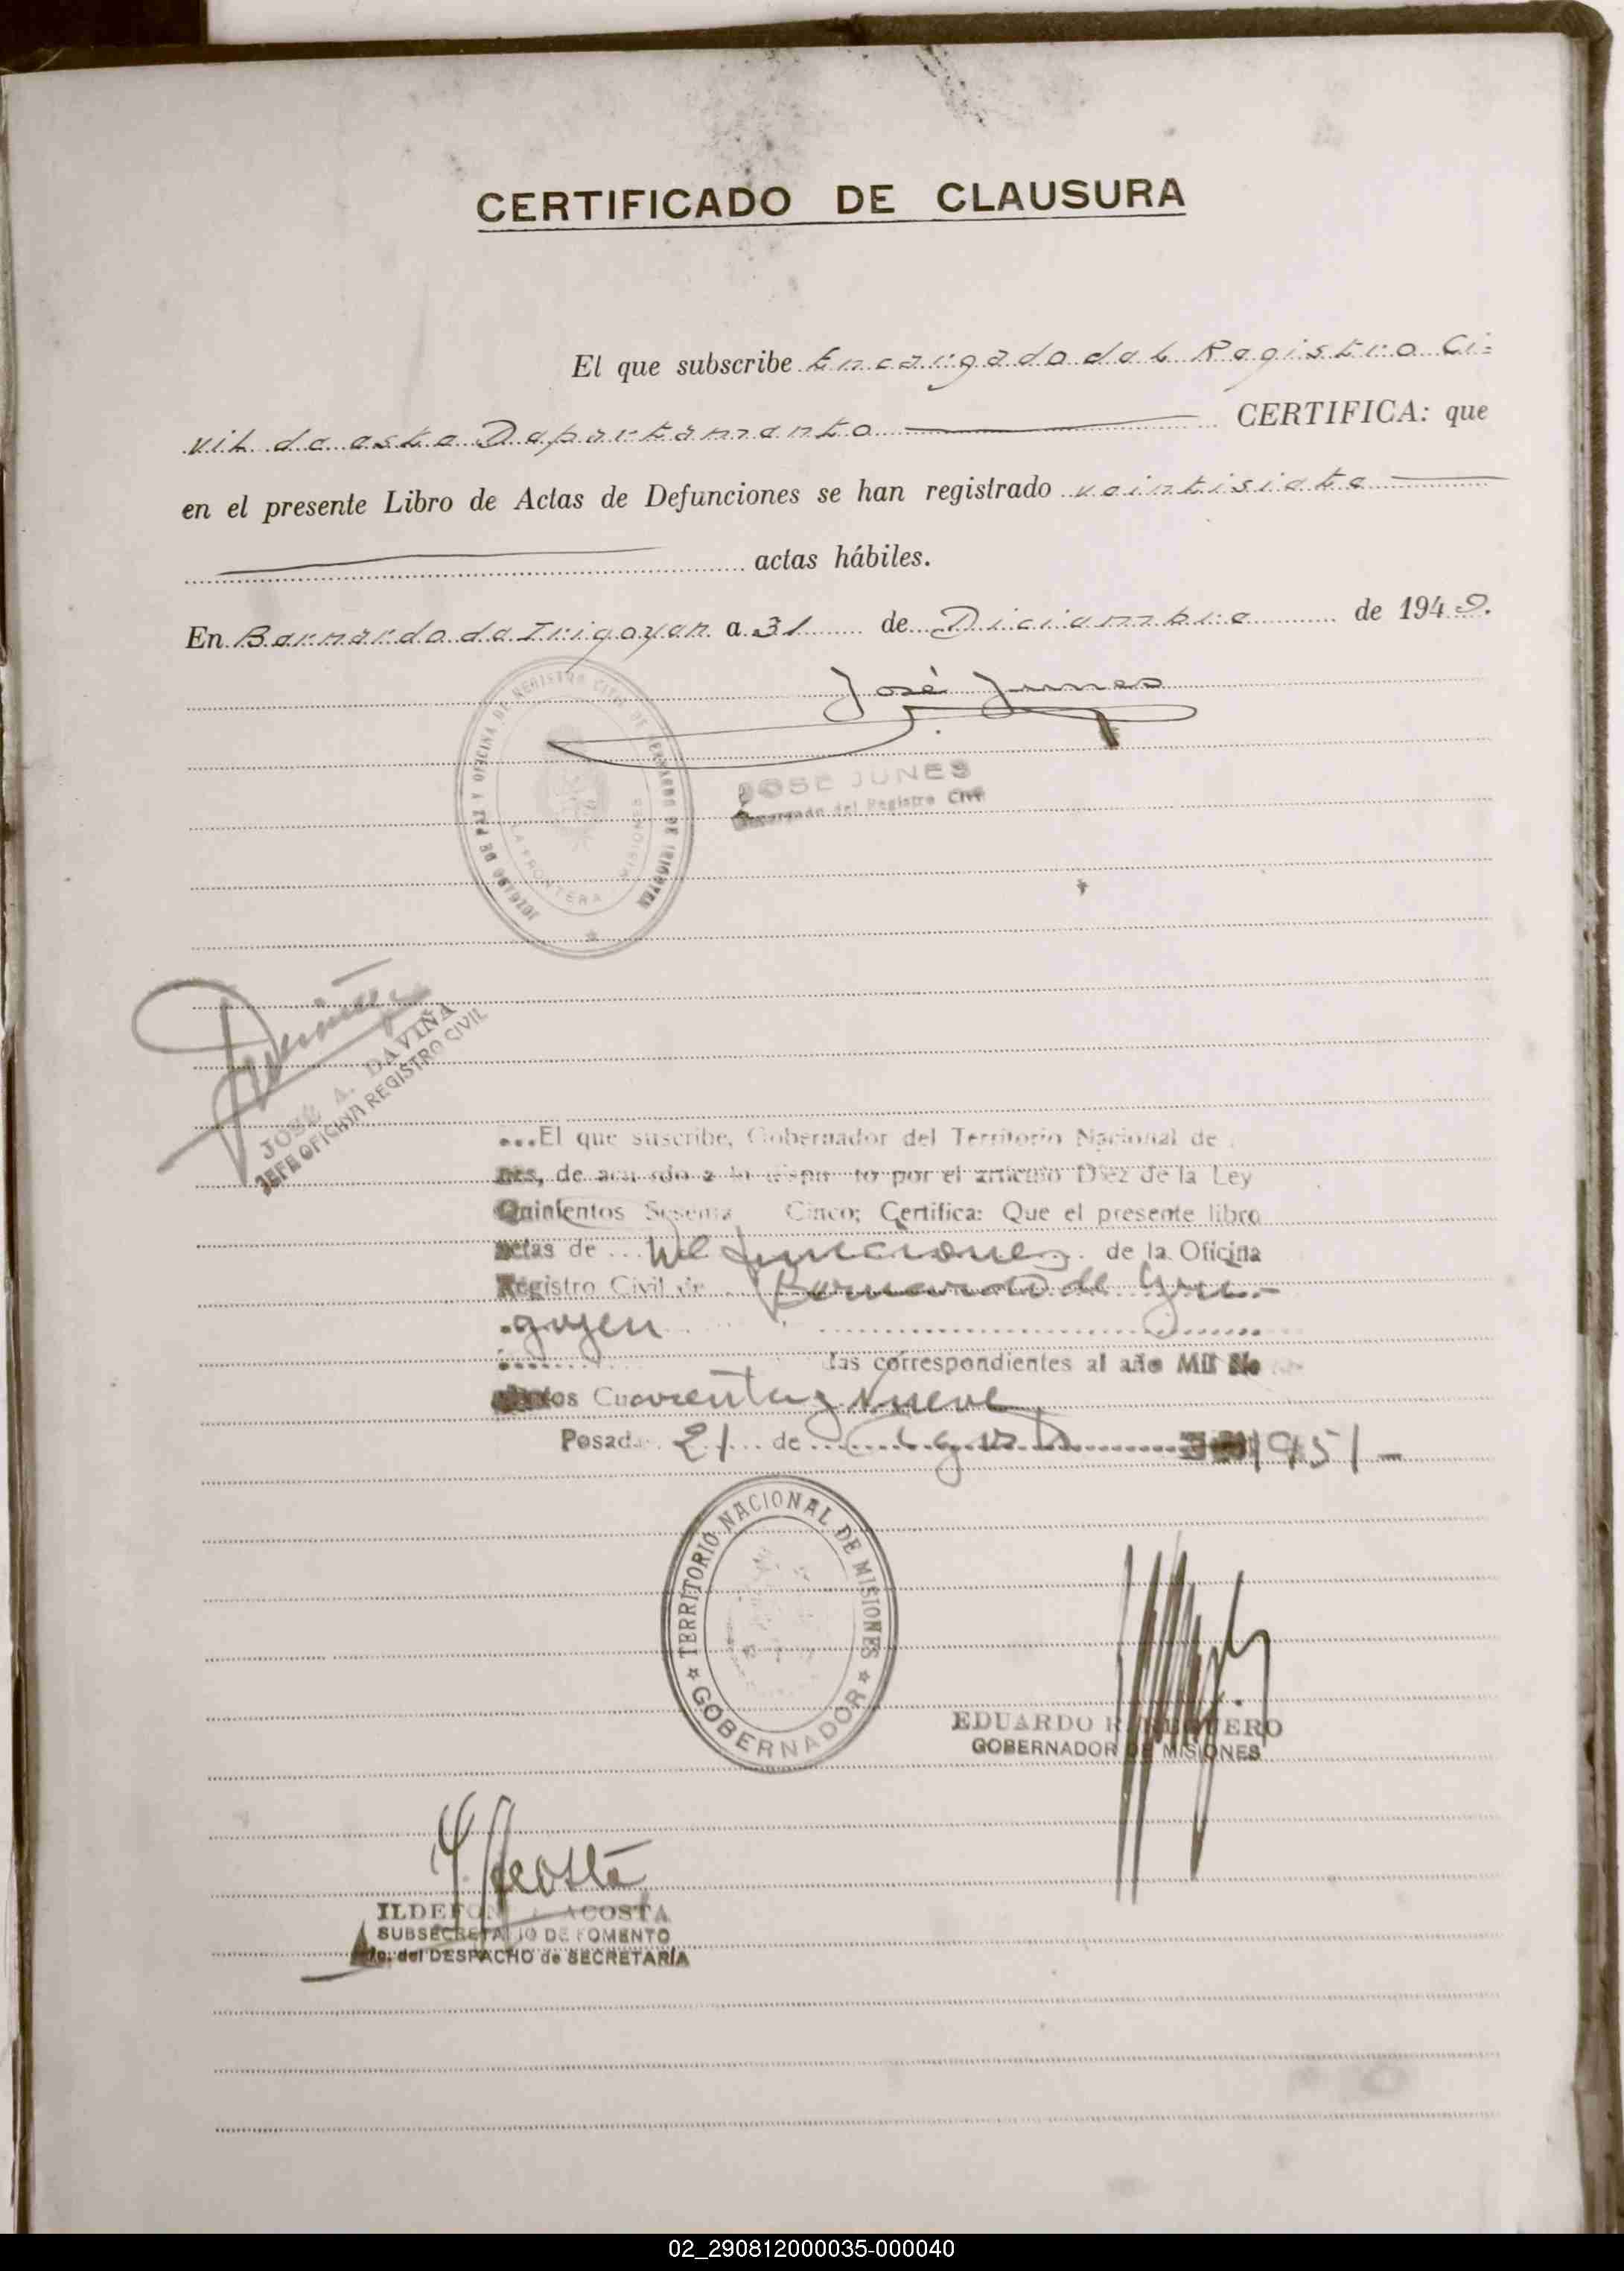 CERTIFICADO DE CLAUSURA
El que subscribe Encargado del Registro Ci-
vil de este Departamento CERTIFICA: que
en el presente Libro de Actas de Defunciones se han registrado veintisiete
actas hábiles.
En Bernardo de Irigoyen a 31 de Diciembre de 1949.
José Junes
JOSE JUNES
Encargado del Registro Civil
JUZGADO DE PAZ Y OFICINA DE REGISTRO CIVIL DE BERNARDO DE IRIGOYEN
LA FRONTERA MISIONES
JOSE A. DAVIÑA
JEFE OFICINA REGISTRO CIVIL
...El que suscribe, Gobernador del Territorio Nacional de
nes, de acuerdo a lo dispuesto por el artículo Diez de la Ley
Quinientos Sesenta Cinco; Certifica: Que el presente libro
actas de de la Oficina
Registro Civil de Bernardo de Yri-
goyen
las correspondientes al año Mil No
Cuarenta y Nueve
Posadas 21 de Agosto 1951-
TERRITORIO NACIONAL DE MISIONES
GOBERNADOR
EDUARDO
GOBERNADOR DE MISIONES
Acosta
ILDEFON ACOSTA
SUBSECRETARIO DE FOMENTO
del DESPACHO de SECRETARÍA
02_290812000035-000040